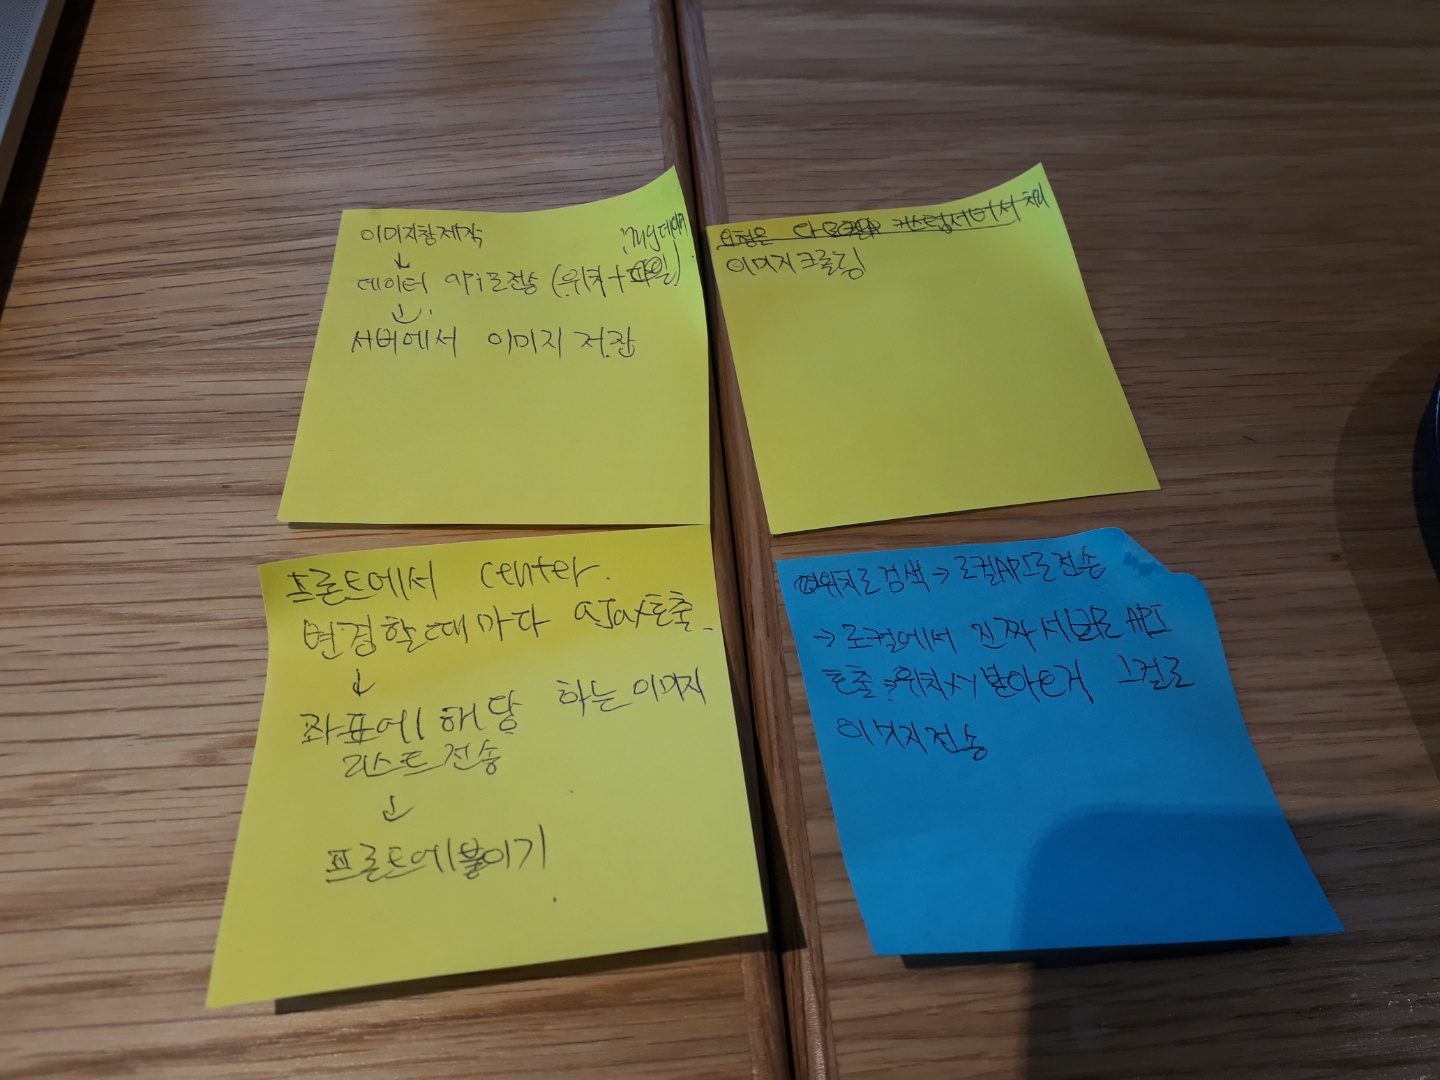 이미지창제작
데이터 api로전송 (위치+파일)
서버에서 이미지 저장
요청은 다 커스텀서버에서 처리
이미지크롤링
프론트에서 center
변경할때마다 ajax호출
좌표에 해당 하는 이미지
리스트 전송
프론트에 붙이기
위치로검색→로컬API로전송
→로컬에서 진짜서버로 API
호출→위치XY받아와 그걸로
이미지전송